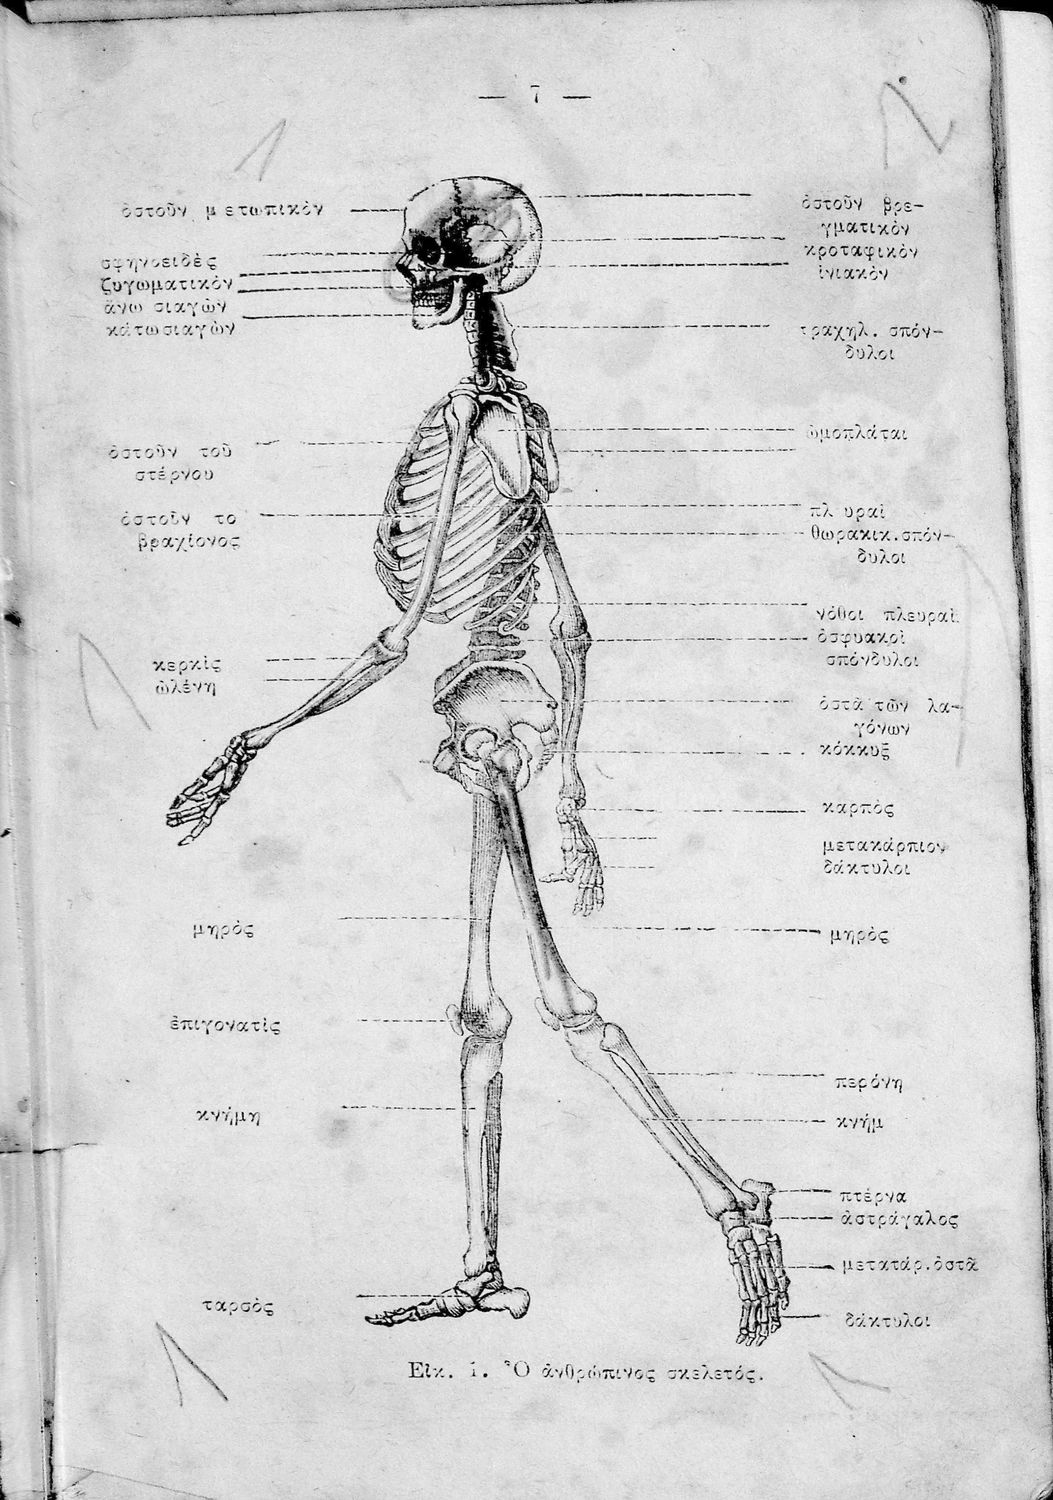 — 7 —
ὀστοῦν μετωπικὸν
σφηνοειδὲς
ζυγωματικὸν
ἄνω σιαγὼν
κάτω σιαγὼν
ὀστοῦν τοῦ
στέρνου
ὀστοῦν το
βραχίονος
κερκὶς
ὠλένη
μηρὸς
ἐπιγονατὶς
κνήμη
ταρσὸς
ὀστοῦν βρε-
γματικὸν
κροταφικὸν
ἰνιακὸν
τραχηλ. σπόν-
δυλοι
ὠμοπλάται
πλ υραὶ
θωρακικ. σπόν-
δυλοι
νόθοι πλευραὶ
ὀσφυακοὶ
σπόνδυλοι
ὀστᾶ τῶν λα-
γόνων
κόκκυξ
καρπὸς
μετακάρπιον
δάκτυλοι
μηρὸς
περόνη
κνήμ
πτέρνα
ἀστράγαλος
μετατάρ. ὀστᾶ
δάκτυλοι
Εἰκ. 1. Ὁ ἀνθρώπινος σκελετός.